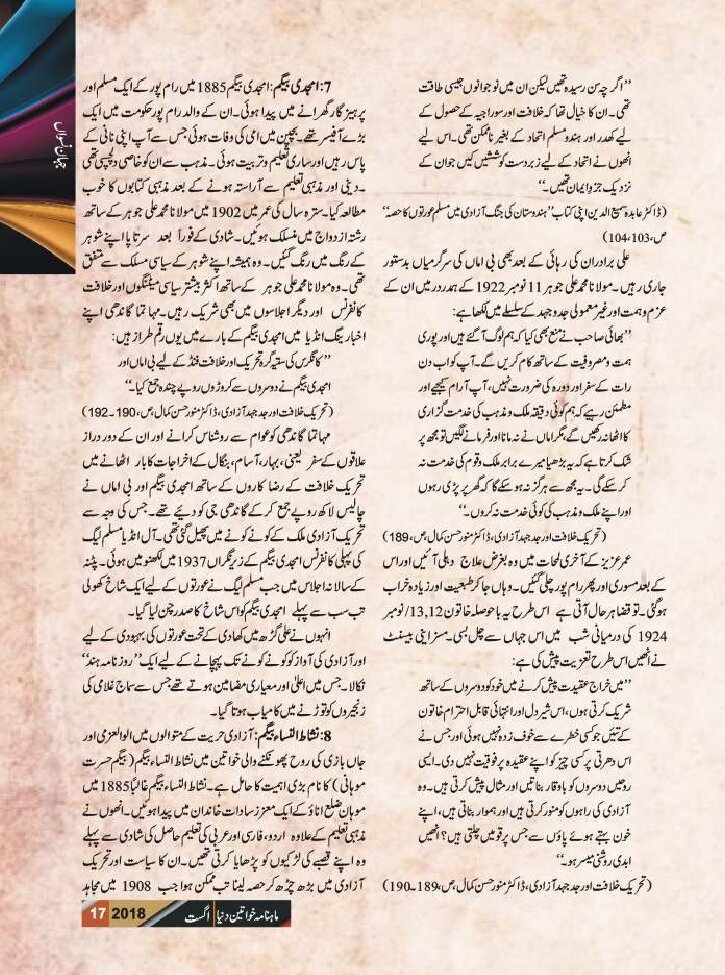 جہان نسواں
”اگرچہ سن رسیدہ تھیں لیکن ان میں نوجوانوں جیسی طاقت
تھی۔ ان کا خیال تھا کہ خلافت اور سوراجیہ کے حصول کے
لیے کھدر اور ہندو مسلم اتحاد کے بغیر ناممکن تھی۔ اس لیے
انھوں نے اتحاد کے لیے زبردست کوششیں کیں جو ان کے
نزدیک جزو ایمان تھیں۔“
(ڈاکٹر عابدہ سمیع الدین اپنی کتاب ”ہندوستان کی جنگ آزادی میں مسلم عورتوں کا حصہ“
ص،103،104)
علی برادران کی رہائی کے بعد بھی بی اماں کی سرگرمیاں بدستور
جاری رہیں۔ مولانا محمد علی جوہر 11 نومبر 1922 کے ہمدرد میں ان کے
عزم وہمت اور غیر معمولی جدوجہد کے سلسلے میں لکھا ہے:
”بھائی صاحب نے منع بھی کیا کہ ہم لوگ آگئے ہیں اور پوری
ہمت ومصروفیت کے ساتھ کام کریں گے۔ آپ کو اب دن
رات کے سفر اور دورہ کی ضرورت نہیں، آپ آرام کیجیے اور
مطمئن رہیے کہ ہم کوئی دقیقہ ملک و مذہب کی خدمت گزاری
کا اٹھا نہ رکھیں گے، مگر اماں نے نہ مانا اور فرمانے لگیں تو مجھ پر
شک کرتا ہے کہ یہ بڑھیا میرے برابر ملک و قوم کی خدمت نہ
کر سکے گی۔ یہ مجھ سے ہرگز نہ ہوسکے گا کہ گھر پر پڑی رہوں
اور اپنے ملک و مذہب کی کوئی خدمت نہ کروں۔“
(تحریک خلافت اور جدجہد آزادی، ڈاکٹر منور حسن کمال،ص،189)
عمر عزیز کے آخری لمحات میں وہ بغرض علاج دہلی آئیں اور اس
کے بعد مسوری اور پھر رام پور چلی گئیں۔ وہاں جا کر طبیعت اور زیادہ خراب
ہوگئی۔ تو قضا بہر حال آتی ہے اس طرح یہ باحوصلہ خاتون 13,12/نومبر
1924 کی درمیانی شب میں اس جہاں سے چل بسی۔ مسز اینی بیسنٹ
نے انھیں اس طرح تعزیت پیش کی ہے:
”میں خراج عقیدت پیش کرنے میں خود کو دوسروں کے ساتھ
شریک کرتی ہوں، اس شیر دل اور انتہائی قابل احترام خاتون
کے تئیں جو کسی خطرے سے خوف زدہ نہیں ہوئی اور جس نے
اس دھرتی پر کسی چیز کو اپنے عقیدہ پر فوقیت نہیں دی۔ ایسی
روحیں دوسروں کو باوقار بناتیں اور مثال پیش کرتی ہیں۔ وہ
آزادی کی راہوں کو منور کرتی ہیں اور ہموار بناتی ہیں، اپنے
خون بہتے ہوئے پاؤں سے جس پر قومیں چلتی ہیں؟ انھیں
ابدی روشنی میسر ہو۔“
(تحریک خلافت اور جدجہد آزادی، ڈاکٹر منور حسن کمال،ص،189۔190)
7: امجدی بیگم: امجدی بیگم 1885 میں رام پور کے ایک مسلم اور
پرہیزگار گھرانے میں پیدا ہوئی۔ ان کے والد رام پور حکومت میں ایک
بڑے آفیسر تھے۔ بچپن میں امی کی وفات ہوئی جس سے آپ اپنی نانی کے
پاس رہیں اور ساری تعلیم و تربیت ہوئی۔ مذہب سے ان کو خاصی دلچسپی تھی
۔ دینی اور مذہبی تعلیم سے آراستہ ہونے کے بعد مذہبی کتابوں کا خوب
مطالعہ کیا۔ سترہ سال کی عمر میں 1902 میں مولانا محمد علی جوہر کے ساتھ
رشتہ ازدواج میں منسلک ہوئیں۔ شادی کے فوراً بعد سرتاپا اپنے شوہر
کے رنگ میں رنگ گئیں۔ وہ ہمیشہ اپنے شوہر کے سیاسی مسلک سے متفق
تھی۔ وہ مولانا محمد علی جوہر کے ساتھ اکثر بیشتر سیاسی میٹنگوں اور خلافت
کانفرنس اور دیگر اجلاسوں میں بھی شریک رہیں۔ مہاتما گاندھی اپنے
اخبار ینگ انڈیا میں امجدی بیگم کے بارے میں یوں رقم طراز ہیں:
”کانگرس کی ستیہ گرہ تحریک اور خلافت فنڈ کے لیے بی اماں اور
امجدی بیگم نے دوسروں سے کروڑوں روپے چندہ جمع کیا۔“
(تحریک خلافت اور جدجہد آزادی، ڈاکٹر منور حسن کمال،ص،190۔192)
مہاتما گاندھی کو عوام سے روشناس کرانے اور ان کے دور دراز
علاقوں کے سفر یعنی، بہار، آسام، بنگال کے اخراجات کا بار اٹھانے میں
تحریک خلافت کے رضا کاروں کے ساتھ امجدی بیگم اور بی اماں نے
چالیس لاکھ روپے جمع کر کے گاندھی جی کو دیے تھے۔ جس کی وجہ سے
تحریک آزادی ملک کے کونے کونے میں پھیل گئی تھی۔ آل انڈیا مسلم لیگ
کی پہلی کانفرنس امجدی بیگم کے زیر نگراں 1937 میں لکھنو میں ہوئی۔ پٹنہ
کے سالانہ اجلاس میں جب مسلم لیگ نے عورتوں کے لیے ایک شاخ کھولی
تب سب سے پہلے امجدی بیگم کو اس شاخ کا صدر چن لیا گیا۔
انہوں نے علی گڑھ میں کھادی کے تحت عورتوں کی بہبودی کے لیے
اور آزادی کی آواز کو کونے کونے تک پہچانے کے لیے ایک ”روزنامہ ہند“
نکالا۔ جس میں اعلیٰ اور معیاری مضامین ہوتے تھے جس سے سماج غلامی کی
زنجیروں کو توڑنے میں کامیاب ہوتا گیا۔
8: نشاط النساء بیگم: آزادی حریت کے متوالوں میں الوالعزمی اور
جاں بازی کی روح پھونکنے والی خواتین میں نشاط النساء بیگم (بیگم حسرت
موہانی) کا نام بڑی اہمیت کا حامل ہے۔ نشاط النساء بیگم غالباً 1885 میں
موہان ضلع اناؤ کے ایک معزز سادات خاندان میں پیدا ہوئیں۔ انھوں نے
مذہبی تعلیم کے علاوہ اردو، فارسی اور عربی کی تعلیم حاصل کی شادی سے پہلے
وہ اپنے قصبے کی لڑکیوں کو پڑھایا کرتی تھیں۔ ان کا سیاست اور تحریک
آزادی میں بڑھ چڑھ کر حصہ لینا تب ممکن ہوا جب 1908 میں مجاہد
ماہنامہ خواتین دنیا اگست 2018 17